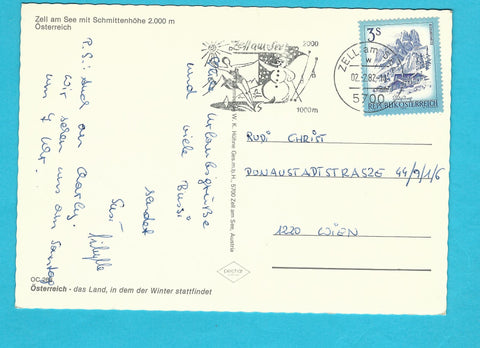 Zell am See mit Schmittenhöhe 2.000 m
Österreich
Zell am See
2000
1000m
ZELL am
5700
3S
REPUBLIK ÖSTERREICH
Urlaubsgrüße
und viele Bussi
sendet
Susi
P.S.:
an Charly.
Wir sehen uns am Samstag
um 4 Uhr.
RUDI CHRIST
DONAUSTADTSTRASZE 44/9/1/6
1220 WIEN
W. K. Hübne Ges.m.b.H., 5700 Zell am See, Austria
pechar
Österreich - das Land, in dem der Winter stattfindet